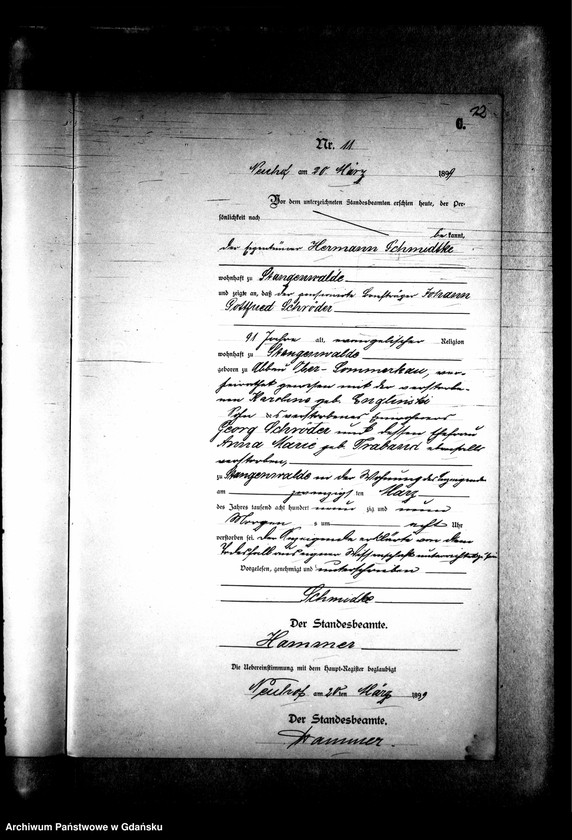 22
C.
Nr. 11
Neuhof am 20. März 1899
Vor dem unterzeichneten Standesbeamten erschien heute, der Per-
sönlichkeit nach
be kannt,
der Eigentümer Hermann Schmidtke
wohnhaft zu Stangenwalde
und zeigte an, daß der pensionierte Briefträger Johann
Gottfried Schröder
91 Jahre alt, evangelischer Religion
wohnhaft zu Stangenwalde
geboren zu Abbau Ober-Sommerkau, ver-
heirathet gewesen mit der verstorbe-
nen Karoline geb. Englinski
Sohn des verstorbenen Einwohners
Georg Schröder und dessen Ehefrau
Anna Marie geb. Traband ebenfalls
verstorben,
zu Stangenwalde in der Wohnung des Anzeigenden
am zwanzigs ten März
des Jahres tausend acht hundert neun zig und neun
Morgens um acht Uhr
verstorben sei. Der Anzeigende erklärte von dem
Todesfall aus eigener Wissenschaft unterrichtet zu sein
Vorgelesen, genehmigt und unterschrieben
Schmidtke
Der Standesbeamte.
Hammer
Die Uebereinstimmung mit dem Haupt-Register beglaubigt
Neuhof am 20 ten März 1899
Der Standesbeamte.
Hammer.
Archiwum Państwowe w Gdańsku